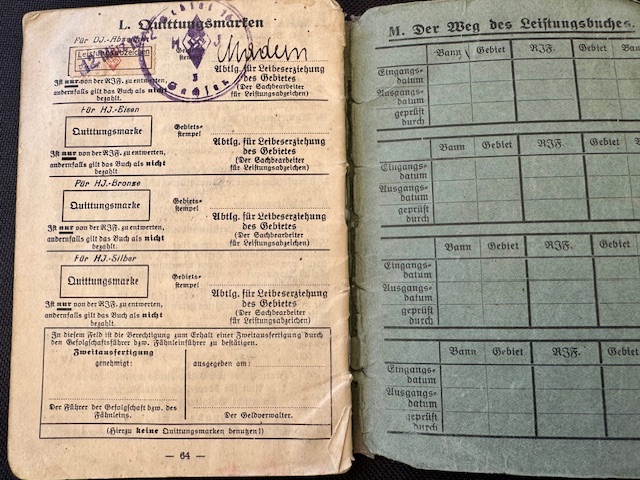 L. Quittungsmarken
Für DJ.-Abzeichen
Leistungsabzeichen
H J
3
Abtlg. für Leibeserziehung
des Gebietes
(Der Sachbearbeiter
für Leistungsabzeichen)
Ist nur von der RJF. zu entwerten,
andernfalls gilt das Buch als nicht
bezahlt.
Für HJ.-Eisen
Quittungsmarke
Gebiets-
stempel
Abtlg. für Leibeserziehung
des Gebietes
(Der Sachbearbeiter
für Leistungsabzeichen)
Ist nur von der RJF. zu entwerten,
andernfalls gilt das Buch als nicht
bezahlt.
Für HJ.-Bronze
Quittungsmarke
Gebiets-
stempel
Abtlg. für Leibeserziehung
des Gebietes
(Der Sachbearbeiter
für Leistungsabzeichen)
Ist nur von der RJF. zu entwerten,
andernfalls gilt das Buch als nicht
bezahlt.
Für HJ.-Silber
Quittungsmarke
Gebiets-
stempel
Abtlg. für Leibeserziehung
des Gebietes
(Der Sachbearbeiter
für Leistungsabzeichen)
Ist nur von der RJF. zu entwerten,
andernfalls gilt das Buch als nicht
bezahlt.
In diesem Feld ist die Berechtigung zum Erhalt einer Zweitausfertigung durch
den Gefolgschaftsführer bzw. Fähnleinführer zu bestätigen.
Zweitausfertigung
genehmigt:
ausgegeben am:
Der Führer der Gefolgschaft bzw. des
Fähnleins.
Der Geldverwalter.
(Hierzu keine Quittungsmarken benutzen!)
— 64 —
M. Der Weg des Leistungsbuches.
Bann Gebiet RJF. Gebiet Ba
Eingangs-
datum
Ausgangs-
datum
geprüft
durch
Bann Gebiet RJF. Gebiet B
Eingangs-
datum
Ausgangs-
datum
geprüft
durch
Bann Gebiet RJF. Gebiet
Eingangs-
datum
Ausgangs-
datum
geprüft
durch
Bann Gebiet RJF. Gebiet
Eingangs-
datum
Ausgangs-
datum
geprüft
durch